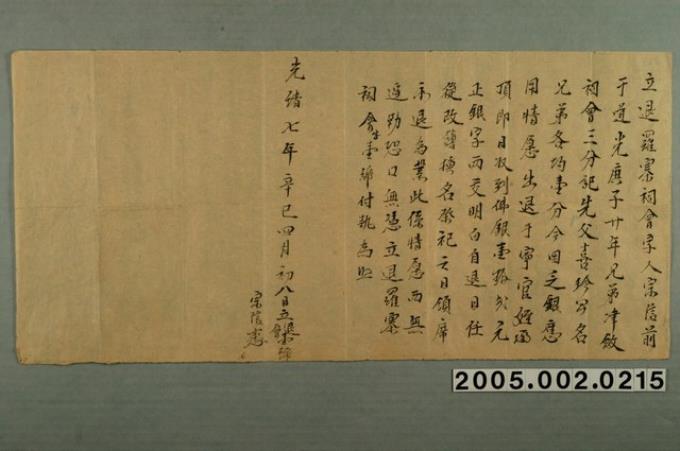 立退羅寨祠會字人宗信前
于道光庚子廿年兄弟津斂
祠會三分記先父喜珍公名
兄弟各均壹分今因乏銀應
用情愿出退于寧官姪
頂即日收到佛銀壹拾 元
正銀字兩交明白自退日任
從改簿換名祭祀云日領席
永退為業此係情愿兩無
逼勒恐口無憑立退羅寨
祠會字壹紙付執為照
光緒七年辛巳四月初八日立退
宗信
2005.002.0215